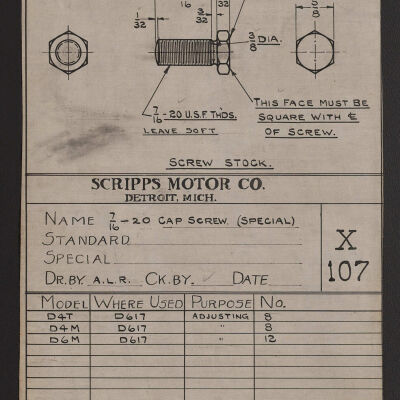 16
1/32
3/32
32
3/8 DIA.
8
7/16 - 20 U.S.F. THDS.
LEAVE SOFT
THIS FACE MUST BE
SQUARE WITH ℄
OF SCREW.
SCREW STOCK.
SCRIPPS MOTOR CO.
DETROIT, MICH.
NAME 7/16 - 20 CAP SCREW (SPECIAL)
STANDARD
SPECIAL
X
107
DR. BY A.L.R. CK. BY. DATE
MODEL WHERE USED PURPOSE NO.
D4T D617 ADJUSTING 8
D4M D617 " 8
D6M D617 " 12